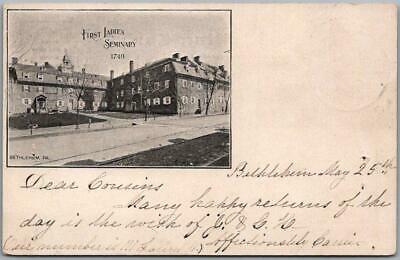 First Ladies
Seminary
1749
BETHLEHEM, PA.
Bethlehem May 25th
Dear Cousins
Many happy returns of the
day is the wish of C. & G. H.
Affectionately Carrie
(our number is 111